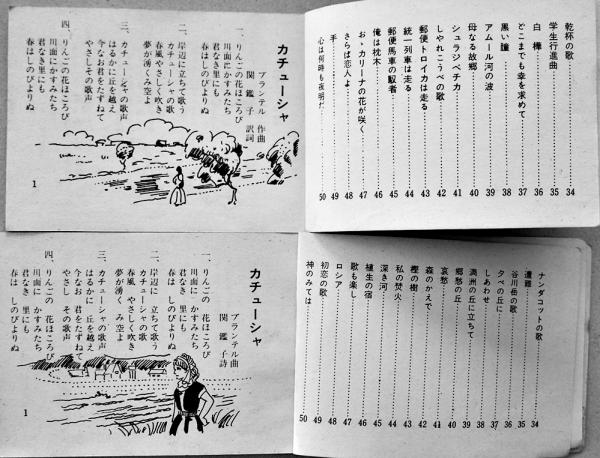 乾杯の歌 34
学生行進曲 35
白樺 36
どこまでも幸を求めて 37
黒い瞳 38
アムール河の波 39
母なる故郷 40
シュラジベチカ 41
しやれこうべの歌 42
郵便トロイカは走る 43
統一列車は走る 44
郵便馬車の馭者 45
俺は枕木 46
お、カリーナの花が咲く 47
さらば恋人よ 48
手 49
心は何時も夜明だ 50
カチューシャ
ブランテル 作曲
関 鑑子 訳詞
一、りんごの花ほころび
川面にかすみたち
君なき里にも
春はしのびよりぬ
二、岸辺に立ちて歌う
カチューシャの歌
春風やさしく吹き
夢が湧くみ空よ
三、カチューシャの歌声
はるかに丘を越え
今なお君をたずねて
やさしその歌声
四、りんごの花ほころび
川面にかすみたち
君なき里にも
春はしのびよりぬ
1
ナンダコットの歌 34
遭難 35
谷川岳の歌 36
夕べの丘に 37
しあわせ 38
満洲の丘に立ちて 39
郷愁の丘 40
哀愁 41
森のかえで 42
樫の樹 43
私の焚火 44
深き河 45
植生の宿 46
歌も楽し 47
ロシア 48
初恋の歌 49
神のみては 50
カチューシャ
ブランテル曲
関 鑑子詩
一、りんごの 花ほころび
川面に かすみたち
君なき 里にも
春は しのびよりぬ
二、岸辺に 立ちて歌う
カチューシャの 歌
春風 やさしく吹き
夢が湧く み空よ
三、カチューシャの 歌声
はるかに 丘を越え
今なお 君をたずねて
やさし その歌声
四、りんごの 花ほころび
川面に かすみたち
君なき 里にも
春は しのびよりぬ
1